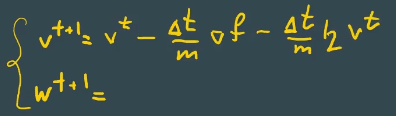 v^{t+1} = v^t - \frac{Δt}{m} ∇f - \frac{Δt}{m} b v^t
w^{t+1} =